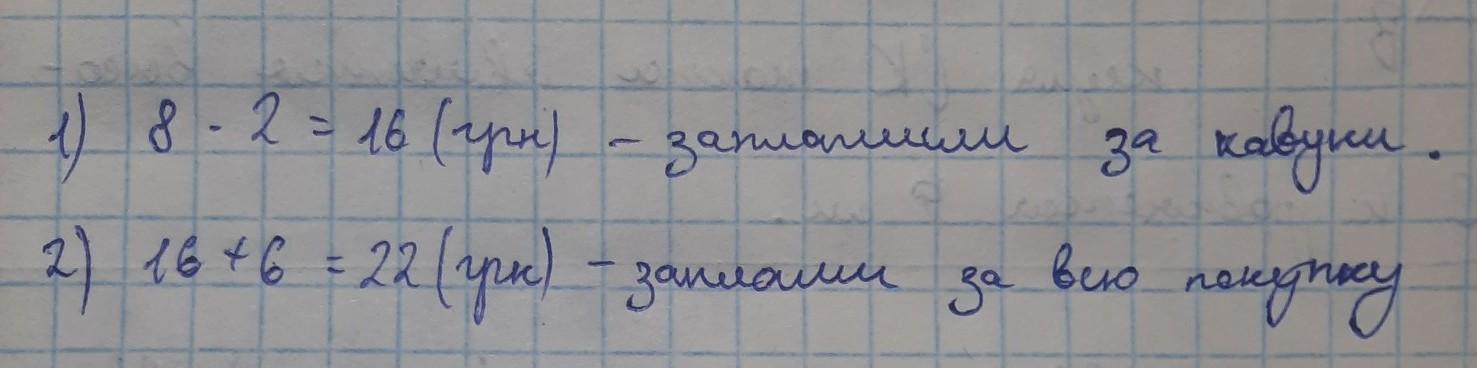 1) 8 · 2 = 16 (грн) – заплатили за кавуни.
2) 16 + 6 = 22 (грн) – заплатили за всю покупку